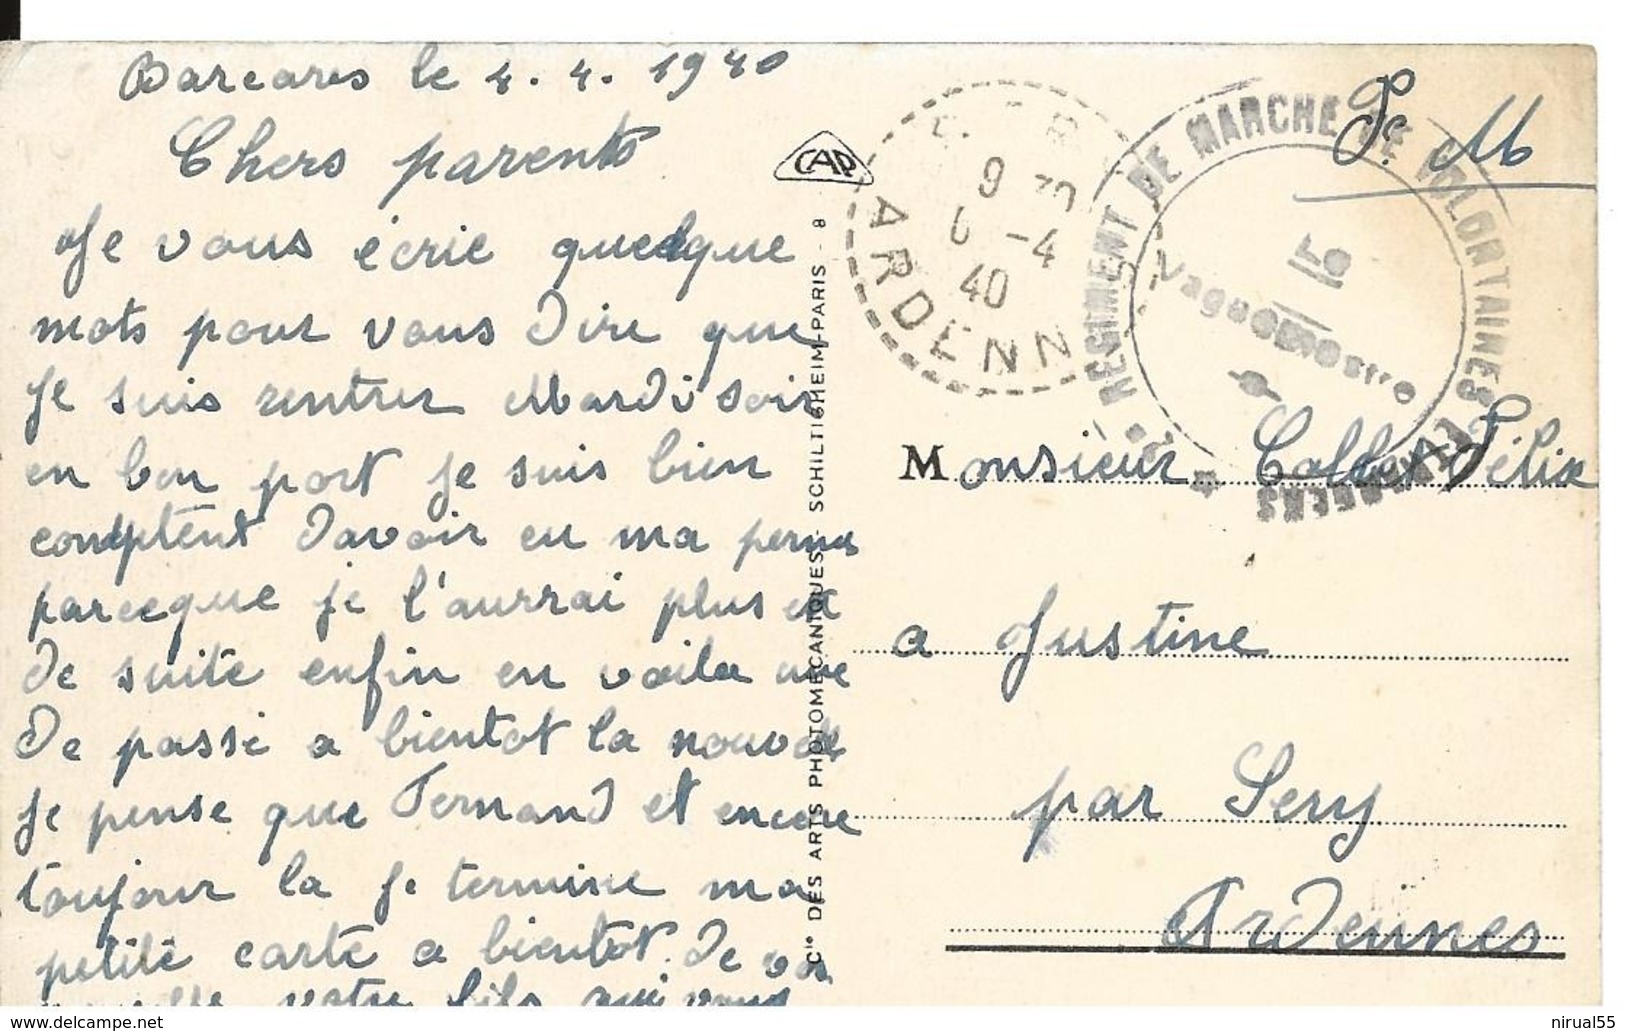 Barcares le 4. 4. 1940
Chers parents
Je vous écrie quedque
mots pour vous dire que
Je suis rentrer Mardi soir
en bon port je suis bien
comptent davoir eu ma perm
parceque je l'aurrai plus
de suite enfin en voila une
de passé a bientot la
Je pense que Fernand et encore
toujour la je termine ma
petite carte a bientot. De
votre fils qui vous
CAP
Cie DES ARTS PHOTOMECANIQUES - SCHILTIGHEIM-PARIS - 8
9 30
6 -4
40
ARDENN
REGIMENT DE MARCHE DE VOLONTAINES ETRANGERS
Le
Vaguemestre
F. M
Monsieur Collet Félix
a Justine
par Sery
Ardennes
nirual55